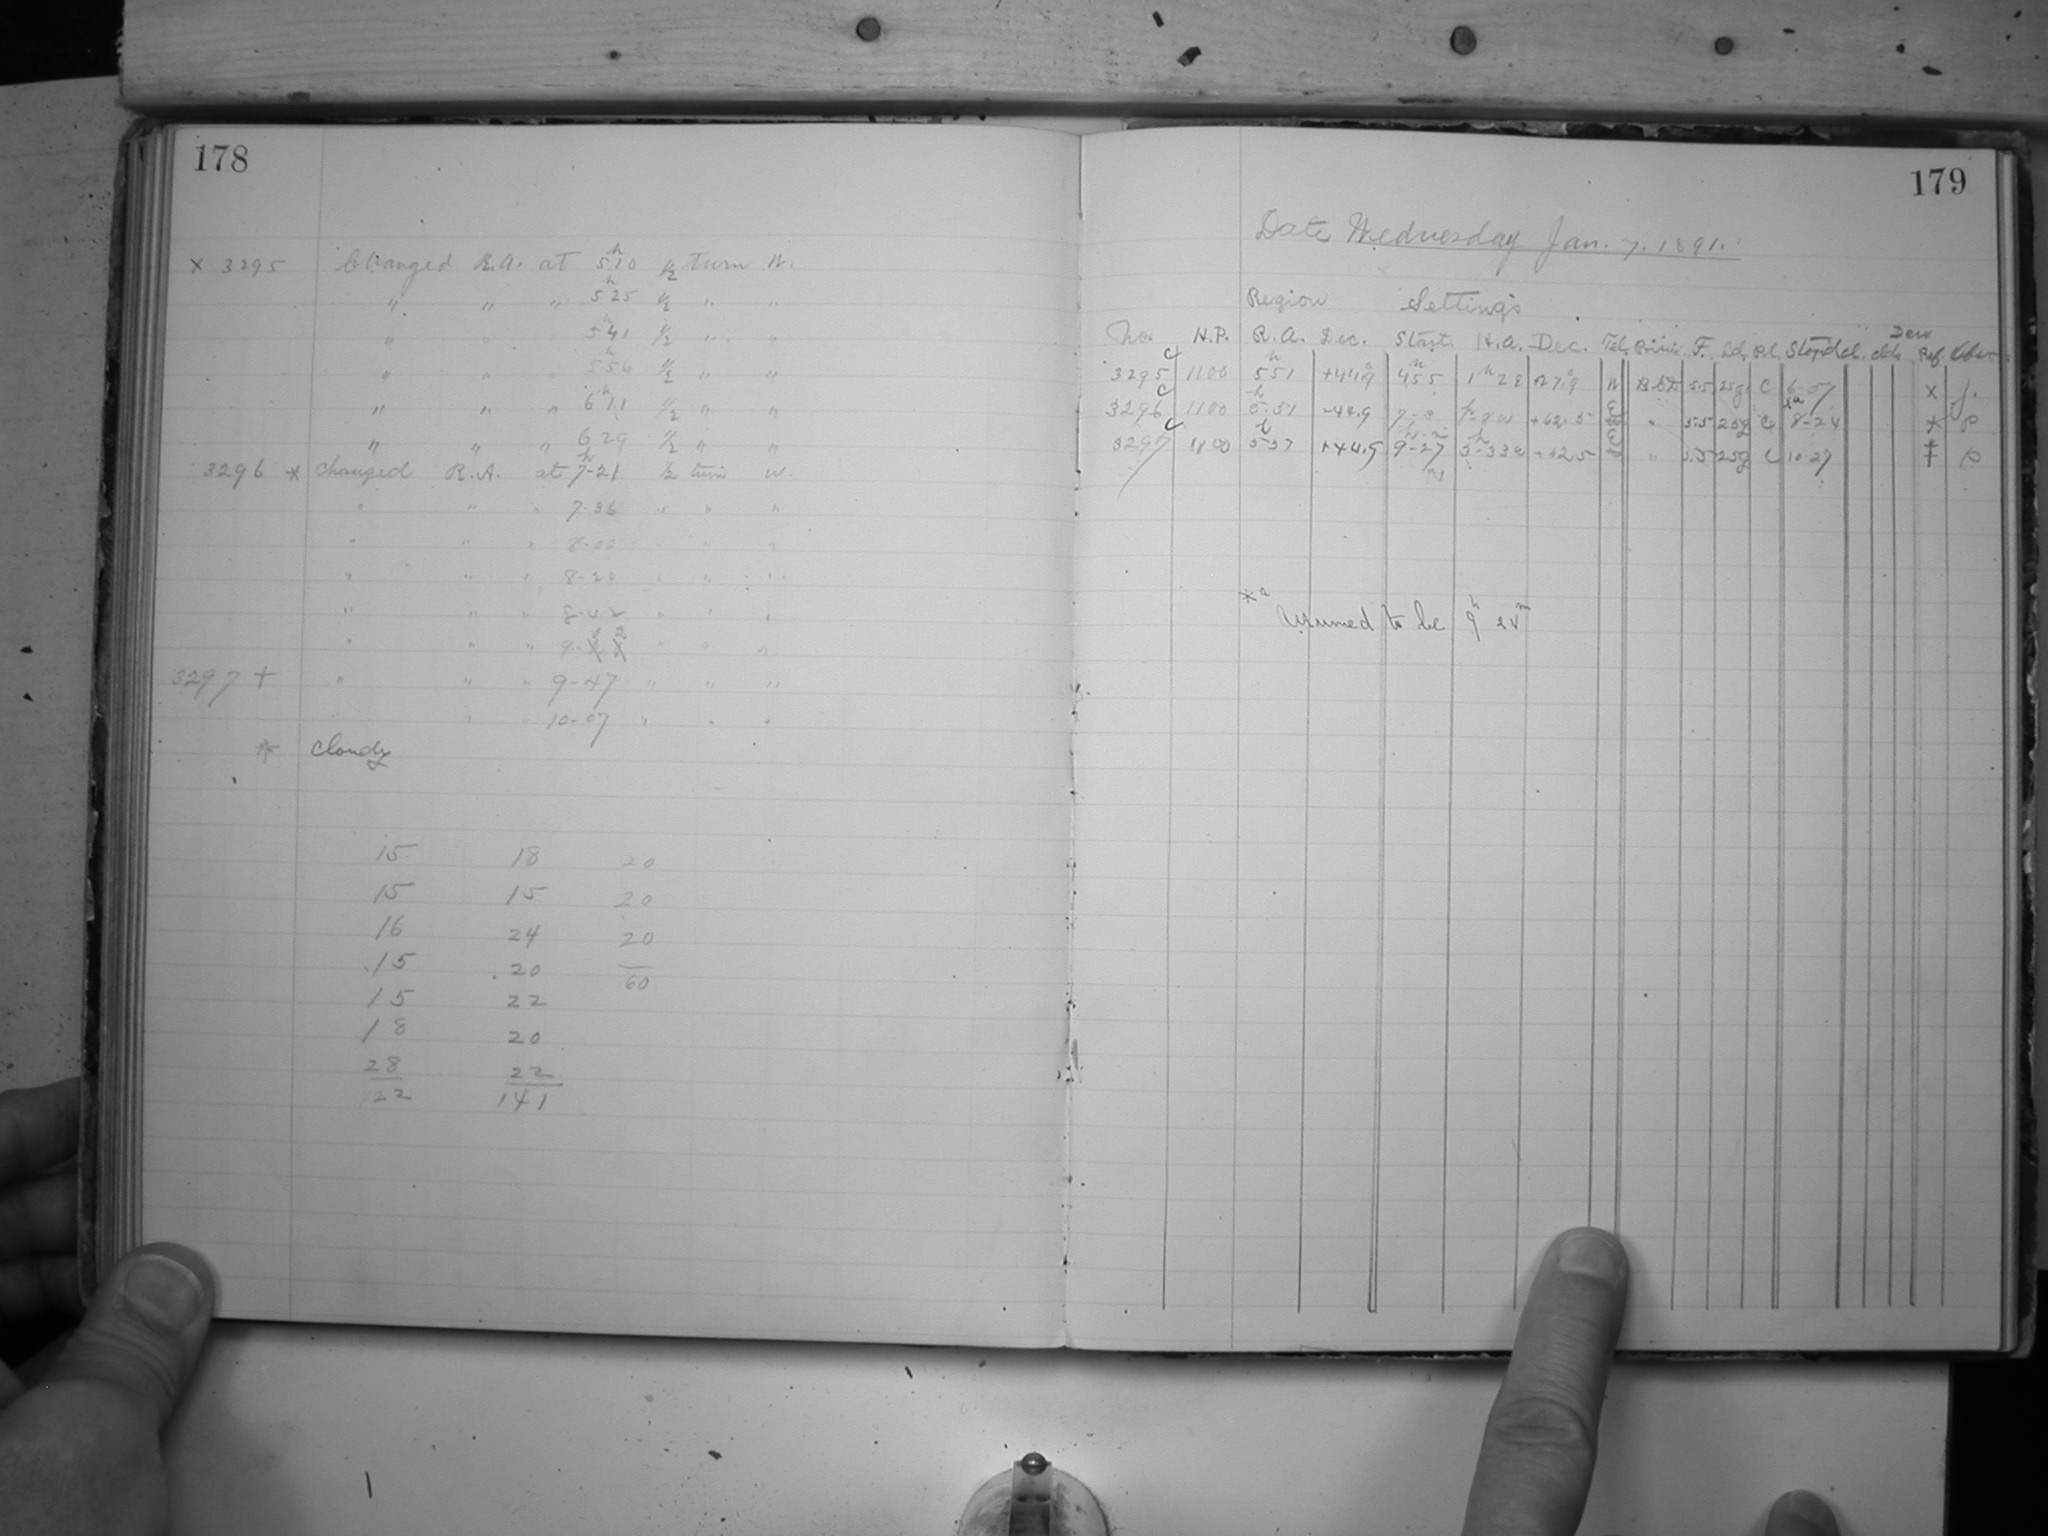 178
× 3295 Changed R.A. at 5h10 ½ turn W.
" " " 5h25 ½ " "
" " " 5h41 ½ " "
" " " 5h56 ½ " "
" " " 6h11 ½ " "
" " " 6 29 ½ " "
3296 * Changed R.A. at 7h-21 ½ turn w.
" " " 7-36 " " "
" " " 8-00 " " "
" " " 8-20 " " "
" " "
" " "
3297 + " " " 9-47 " " "
" " " 10-07 " " "
* Cloudy
15 18 20
15 15 20
16 24 20
15 20 60
15 22
18 20
28 22
122 141
179
Date Wednesday Jan. 7. 1891.
Region Settings
No. H.P. R.A. Dec. Start. H.A. Dec. Tel. Prism F. Sd. Pl. Stop Cl. Clds. Dew Ref. Obs.
3295 c 1100 5h51 +44.9 4h55 1h28 W 5.5 25g C 6-07 × J.
3296 c 1100 5h.51 +62.5 " 5.5 25g C *a 8-24 *
3297 c 1100 +44.9 9h-27m +62.5 " 5.5 25g C 10-27 ‡
*a Assumed to be 9h 24m